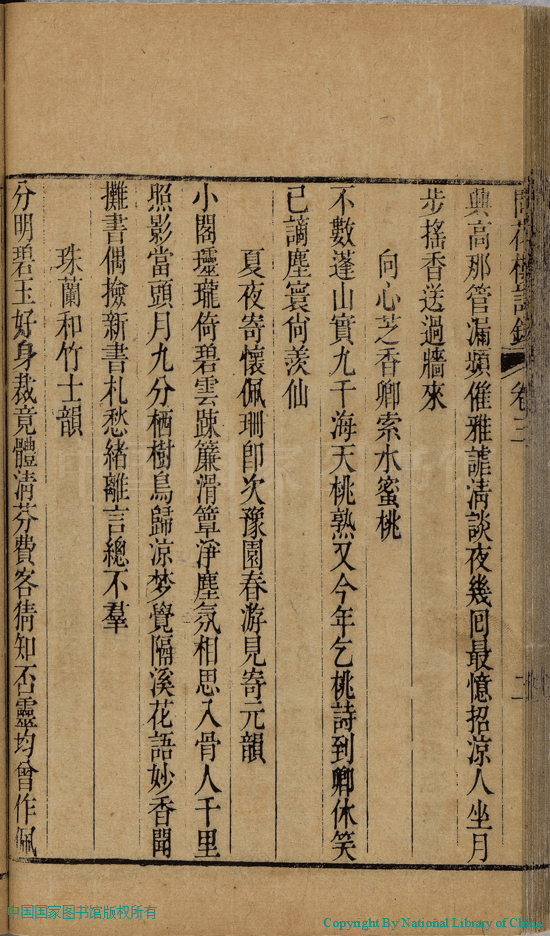 卷三
二
興高那管漏頻催雅謔清談夜幾回最憶招涼人坐月
步搖香送過牆來
向心芝香卿索水蜜桃
不數蓬山實九千海天桃熟又今年乞桃詩到卿休笑
已謫塵寰尙羨仙
夏夜寄懷佩珊卽次豫園春游見寄元韻
小閣瓏倚碧雲踈簾滑簟淨塵氛相思入骨人千里
照影當頭月九分栖樹鳥歸涼梦覺隔溪花語妙香聞
攤書偶撿新書札愁緒離言總不羣
珠蘭和竹士韻
分明碧玉好身裁竟體淸芬費客猜知否靈均曾作佩
中国国家图书馆版权所有
Copyright By National Library of China